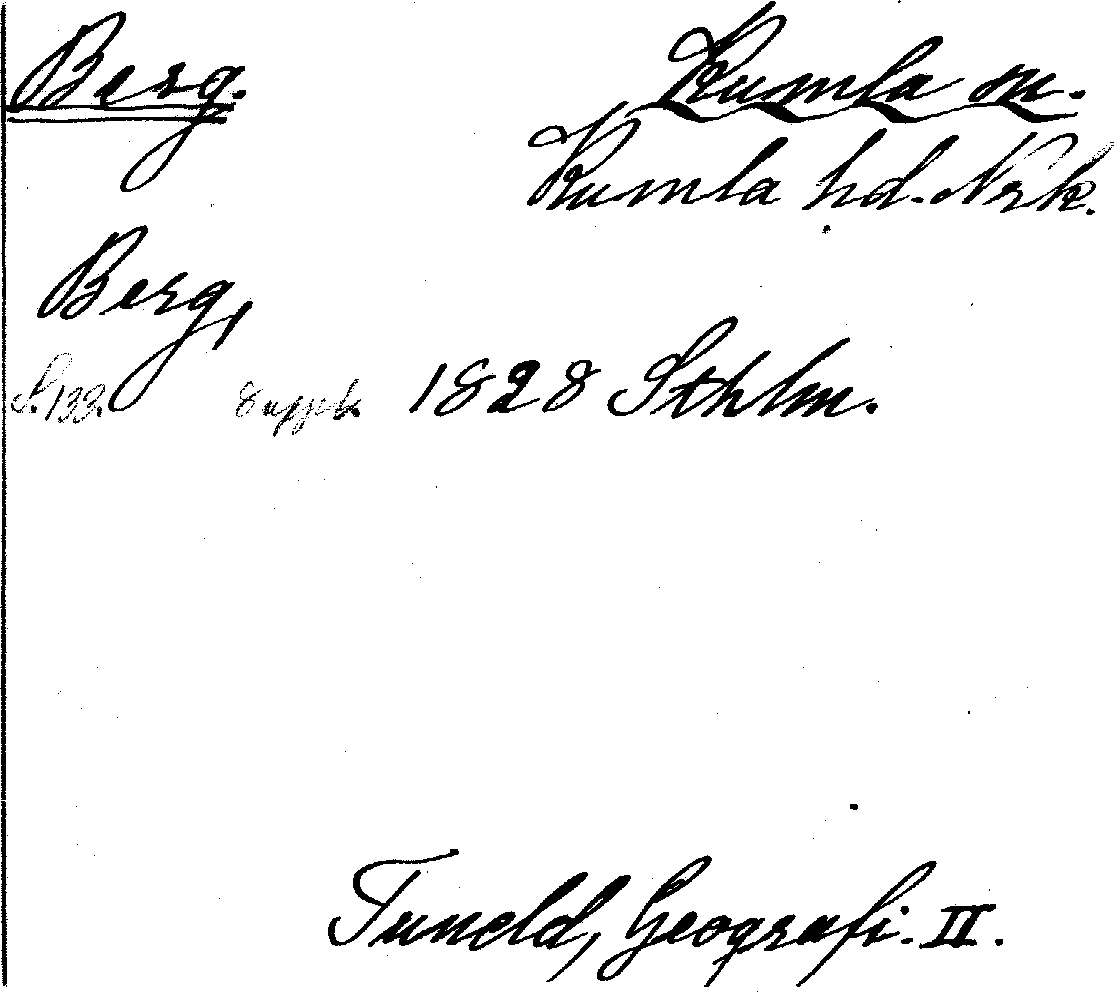 Berg. Kumla sn.
Kumla hd. Nrk.
Berg,
S. 133. 8 uppl. 1828 Sthlm.
Tuneld, Geografi. II.